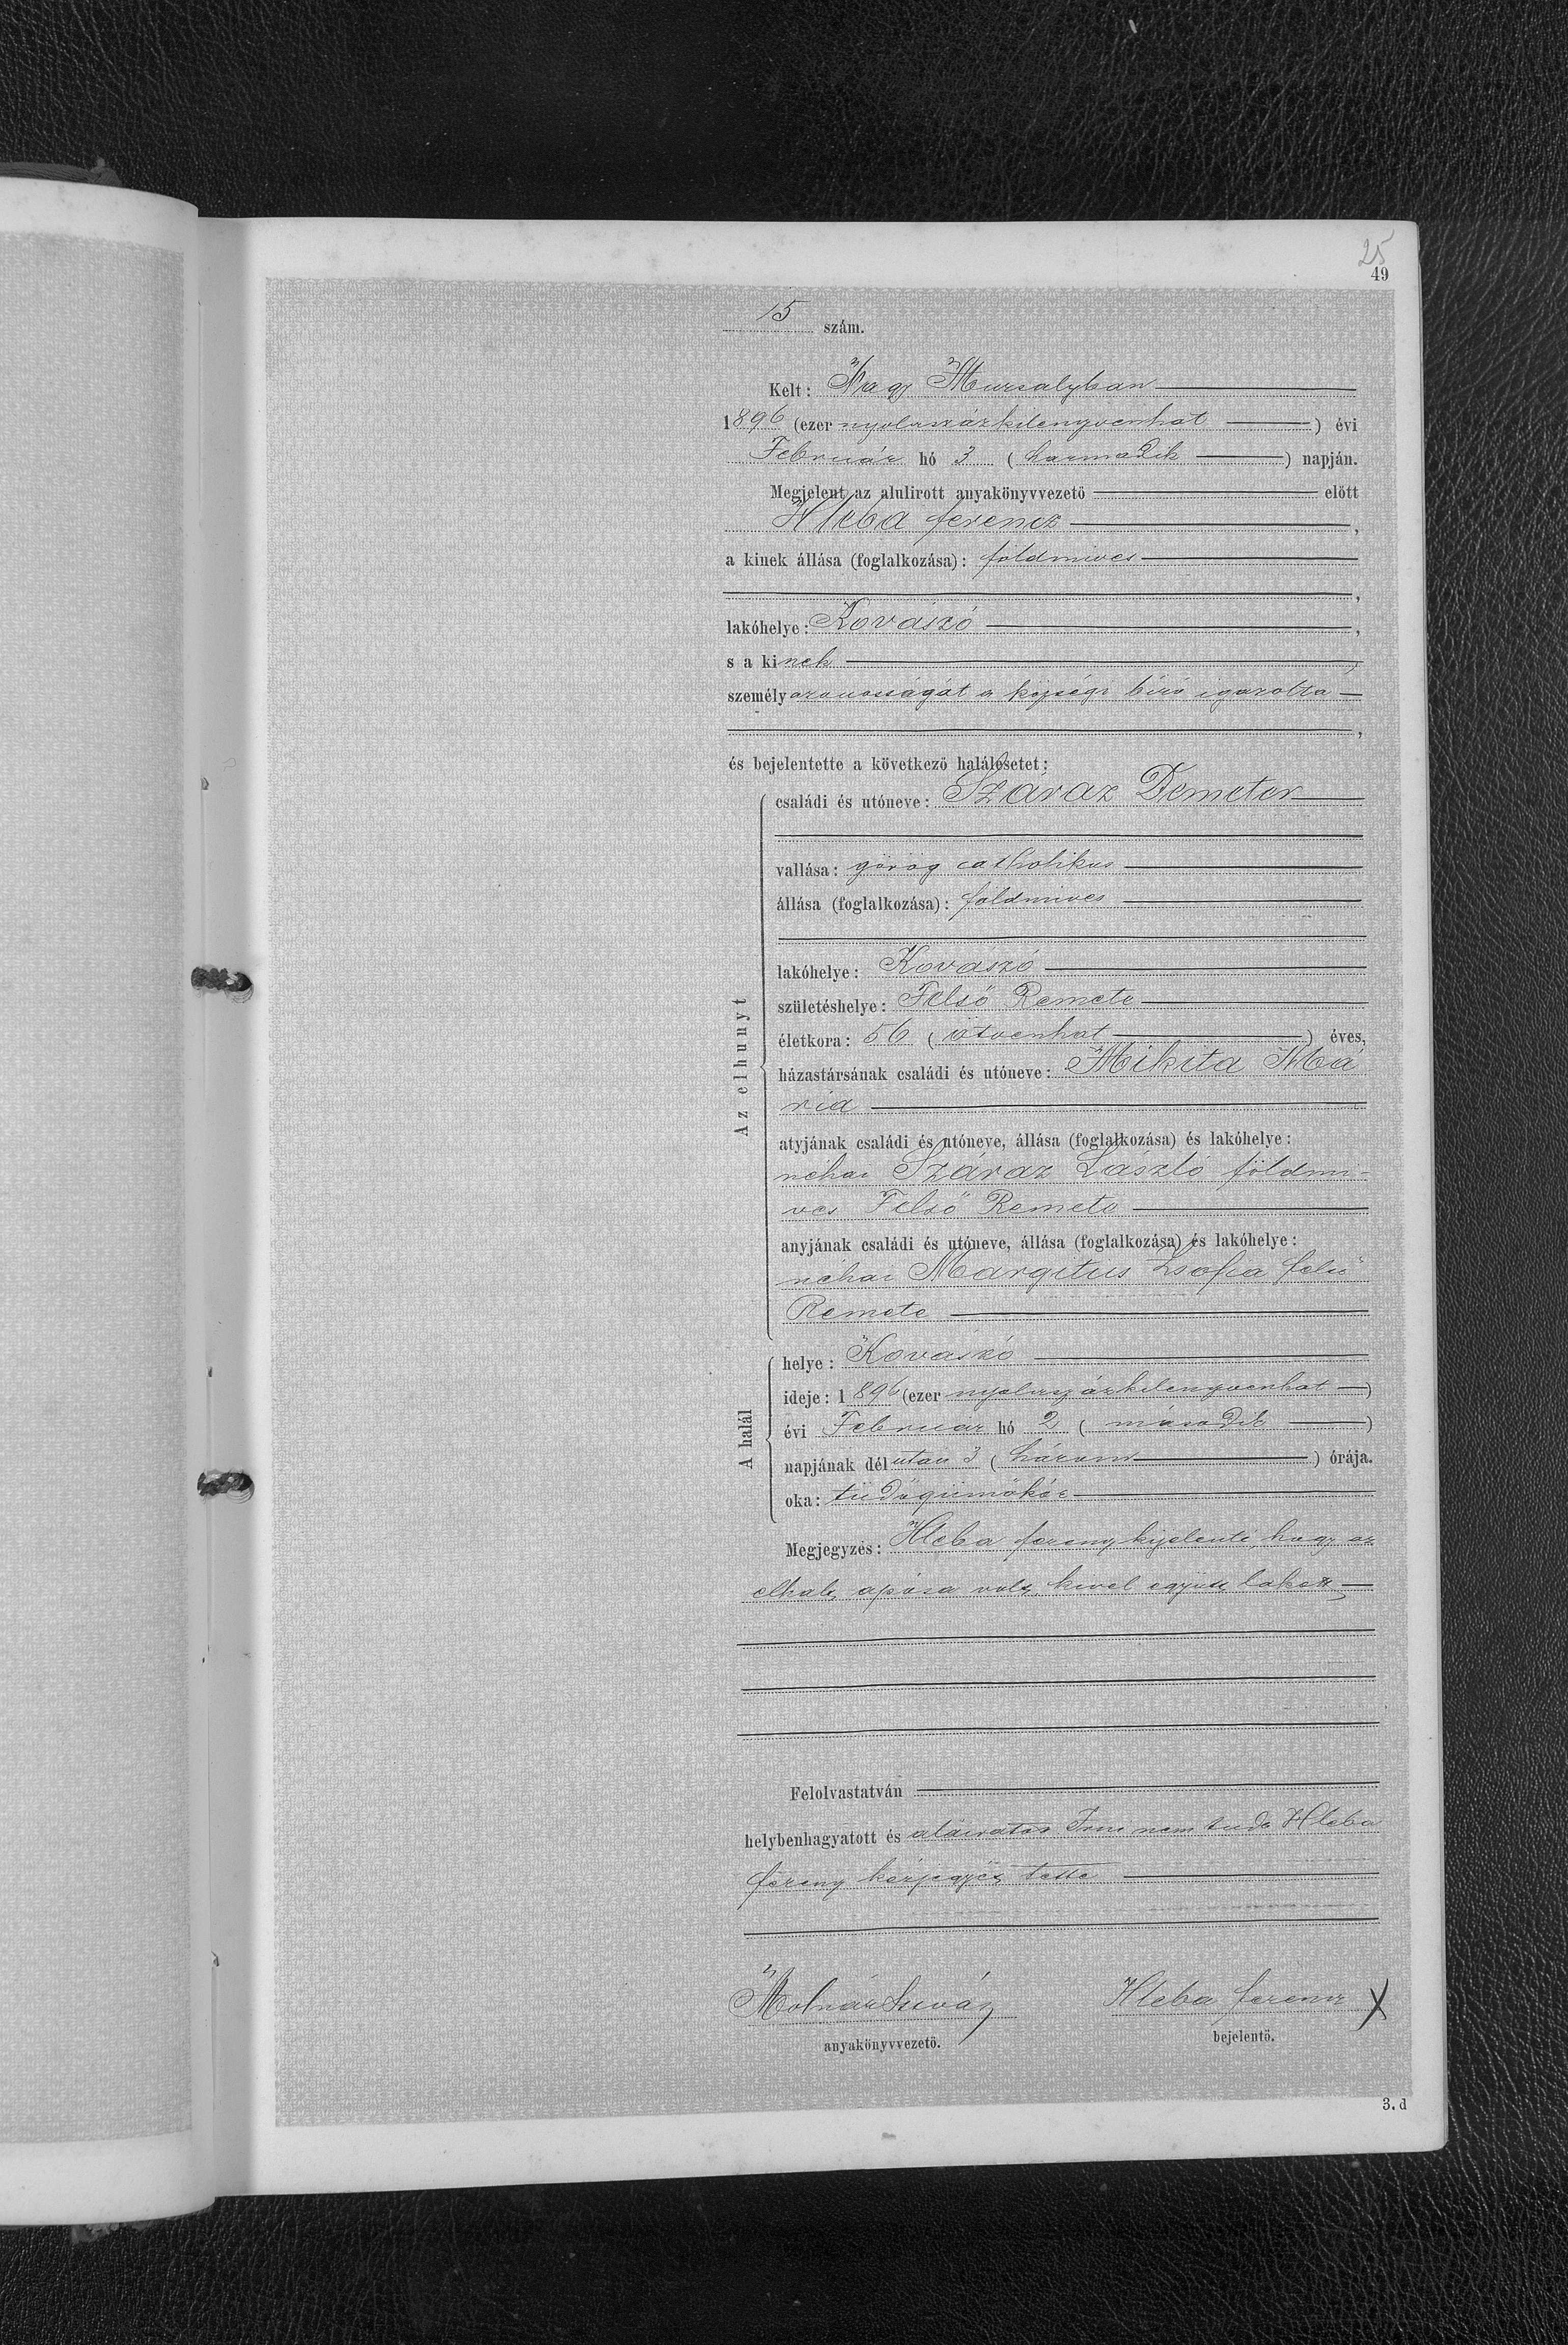 25
49
15 szám.
Kelt: Nagy Muzsalyban
1896 (ezer nyolczszázkilenczvenhat) évi
Február hó 3 (harmadik) napján.
Megjelent az alulirott anyakönyvvezető előtt
Hleba ferencz,
a kinek állása (foglalkozása): földmives
,
lakóhelye: Kovászó,
s a kinek,
személyazonosságát a községi biró igazolta
,
és bejelentette a következő halálesetet:
Az elhunyt
családi és utóneve: Száraz Demeter
vallása: görög catholikus
állása (foglalkozása): földmives
lakóhelye: Kovászó
születéshelye: Felső Remete
életkora: 56 (ötvenhat) éves,
házastársának családi és utóneve: Mikita Má
ria
atyjának családi és utóneve, állása (foglalkozása) és lakóhelye:
néhai Száraz László földmi-
ves Felső Remete
anyjának családi és utóneve, állása (foglalkozása) és lakóhelye:
néhai Margitus Zsofia felső
Remete
A halál
helye: Kovászó
ideje: 1896 (ezer nyolczszázkilenczvenhat)
évi Február hó 2 (második)
napjának délután 3 (három) órája.
oka: tüdőgümőkór
Megjegyzés: Hleba ferencz kijelenti, hogy az
elhalt apósa volt, kivel együtt lakott
Felolvastatván
helybenhagyatott és aláiratott Irni nem tudó Hleba
ferencz kézjegyét tette
Molnár István
anyakönyvvezető.
Hleba ferencz X
bejelentő.
3. d